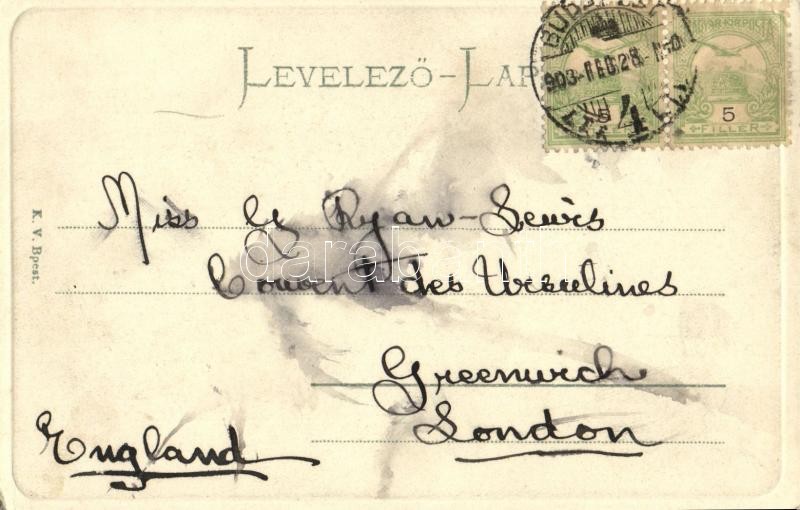 LEVELEZŐ-LAP
BUDAPEST
903 FEB 28
4
MAGYAR KIR. POSTA
5
5
FILLÉR
Miss G Ryan-Lewis
Couvent des Ursulines
Greenwich
London
England
K. V. Bpest.
darabanth